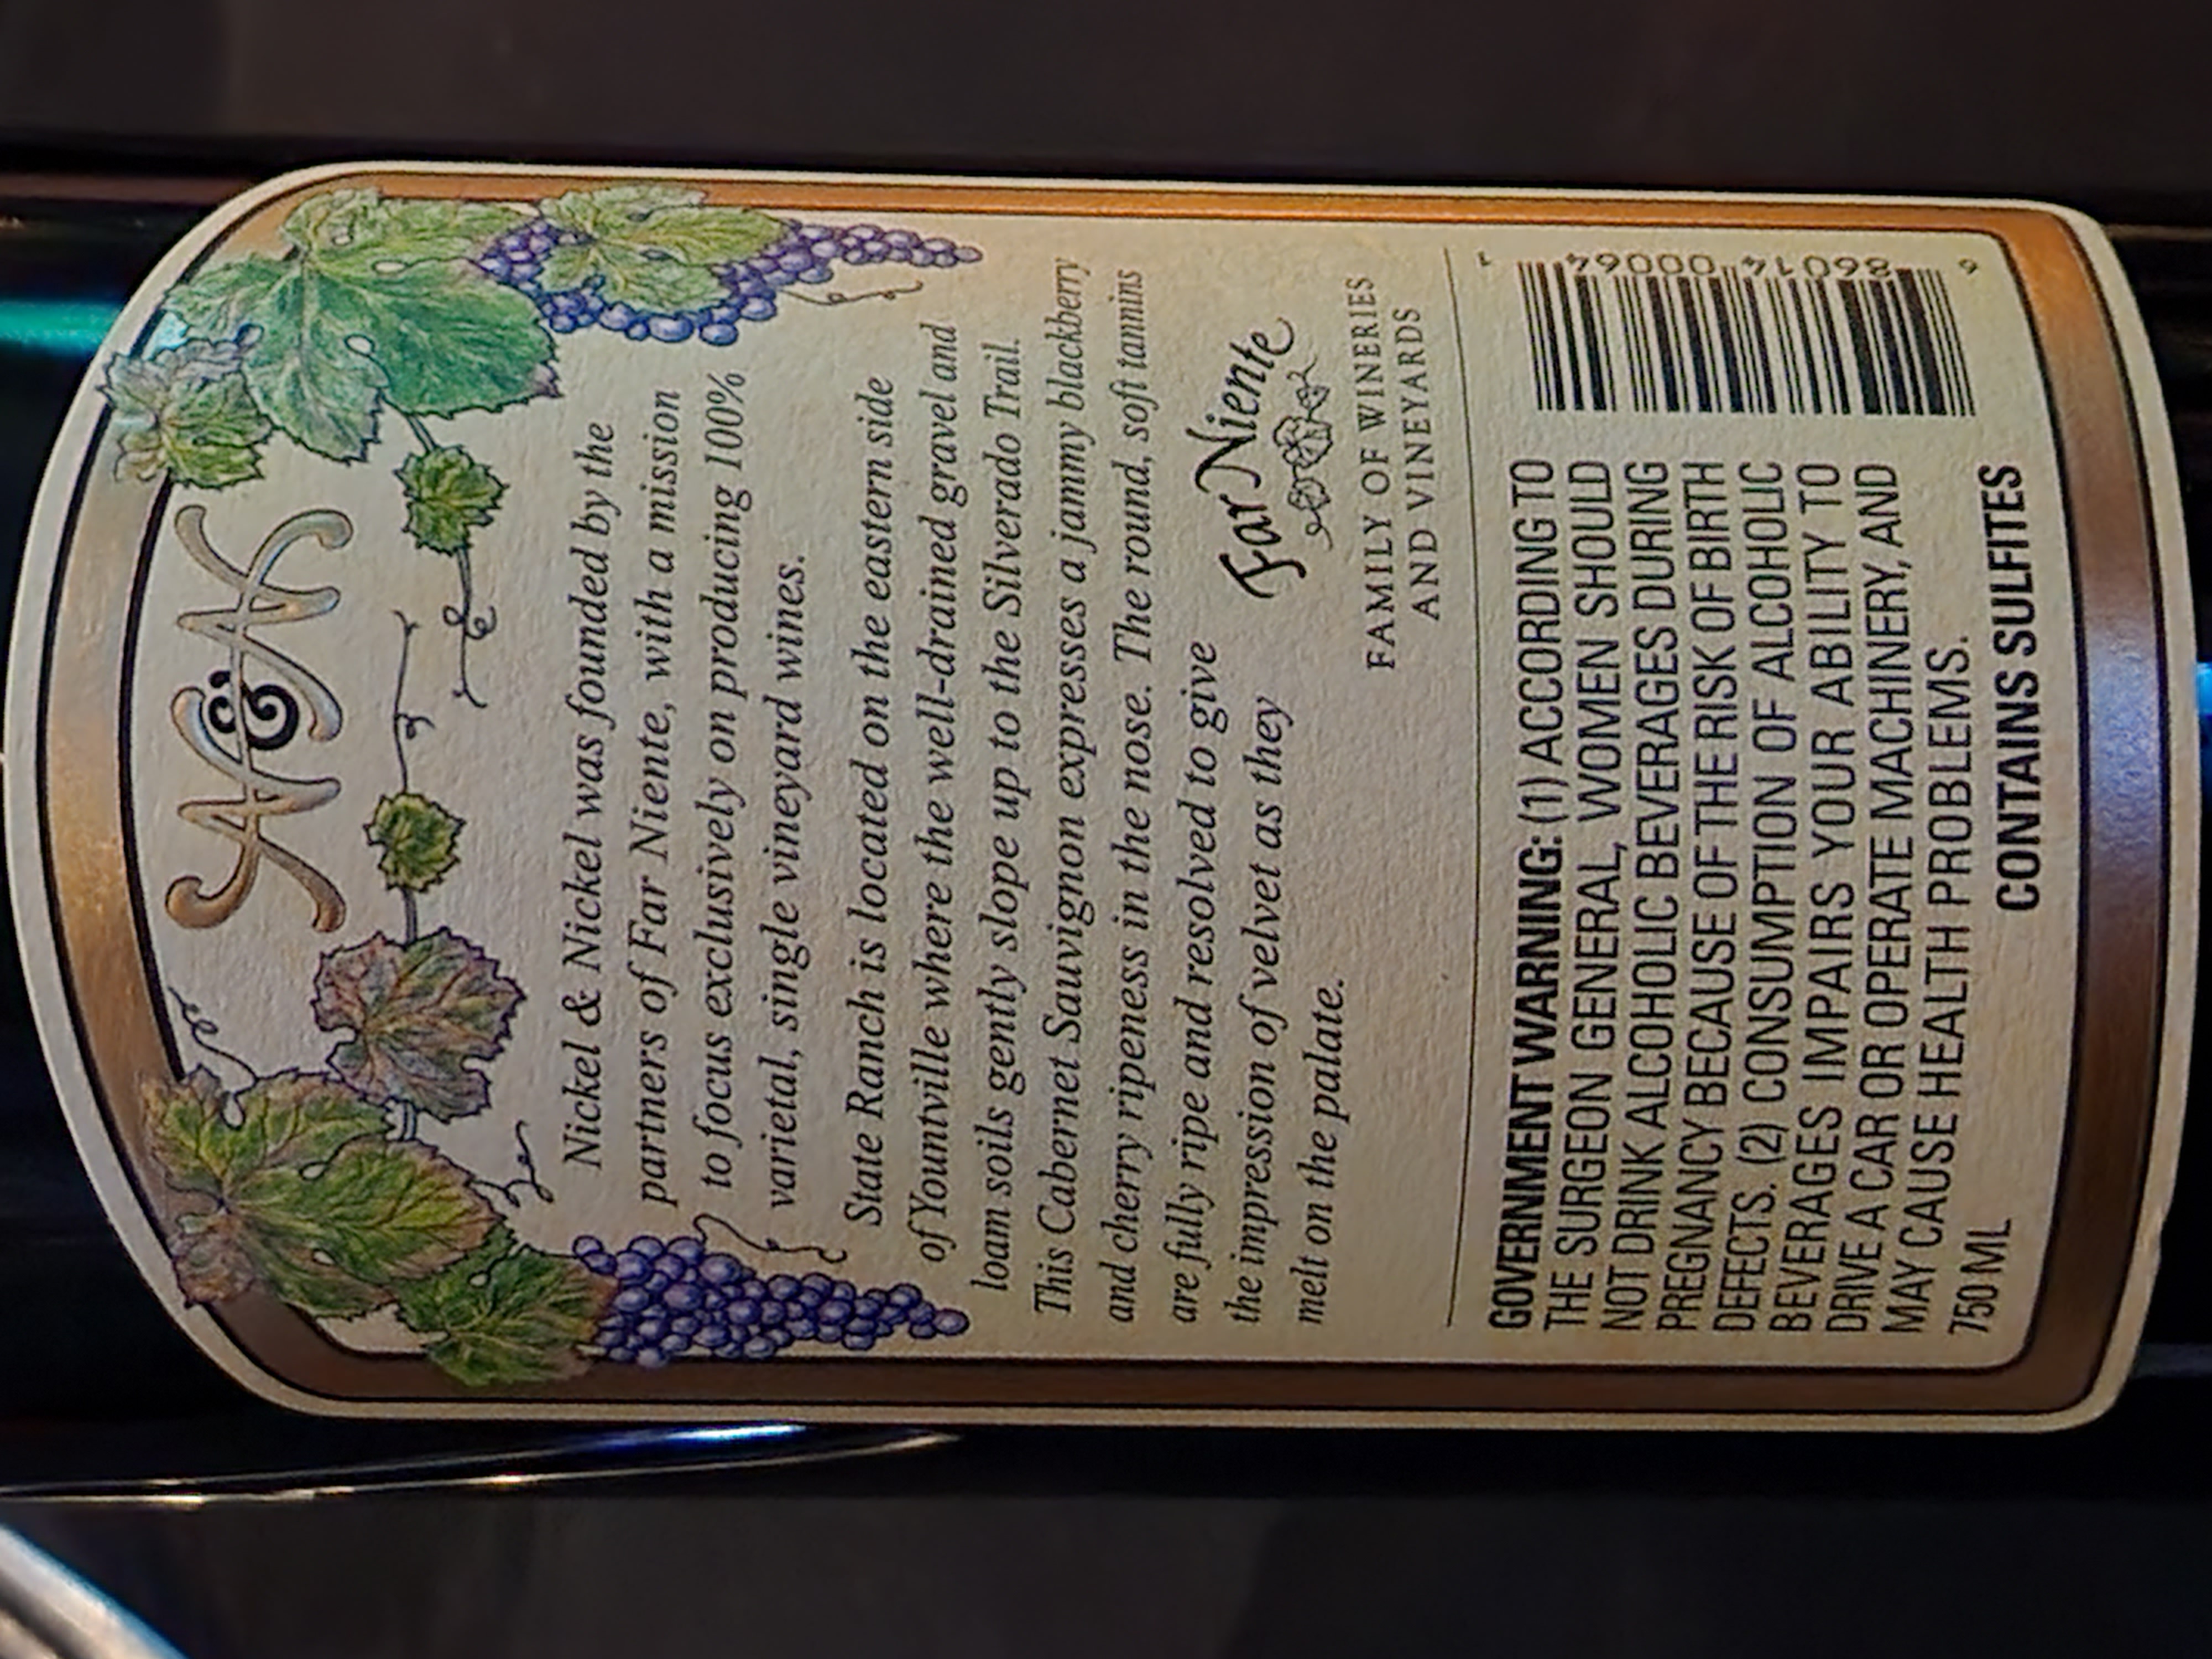 N&N
Nickel & Nickel was founded by the
partners of Far Niente, with a mission
to focus exclusively on producing 100%
varietal, single vineyard wines.
State Ranch is located on the eastern side
of Yountville where the well-drained gravel and
loam soils gently slope up to the Silverado Trail.
This Cabernet Sauvignon expresses a jammy blackberry
and cherry ripeness in the nose. The round, soft tannins
are fully ripe and resolved to give
the impression of velvet as they
melt on the palate.
Far Niente
FAMILY OF WINERIES
AND VINEYARDS
GOVERNMENT WARNING: (1) ACCORDING TO
THE SURGEON GENERAL, WOMEN SHOULD
NOT DRINK ALCOHOLIC BEVERAGES DURING
PREGNANCY BECAUSE OF THE RISK OF BIRTH
DEFECTS. (2) CONSUMPTION OF ALCOHOLIC
BEVERAGES IMPAIRS YOUR ABILITY TO
DRIVE A CAR OR OPERATE MACHINERY, AND
MAY CAUSE HEALTH PROBLEMS.
750 ML CONTAINS SULFITES
86014 00064